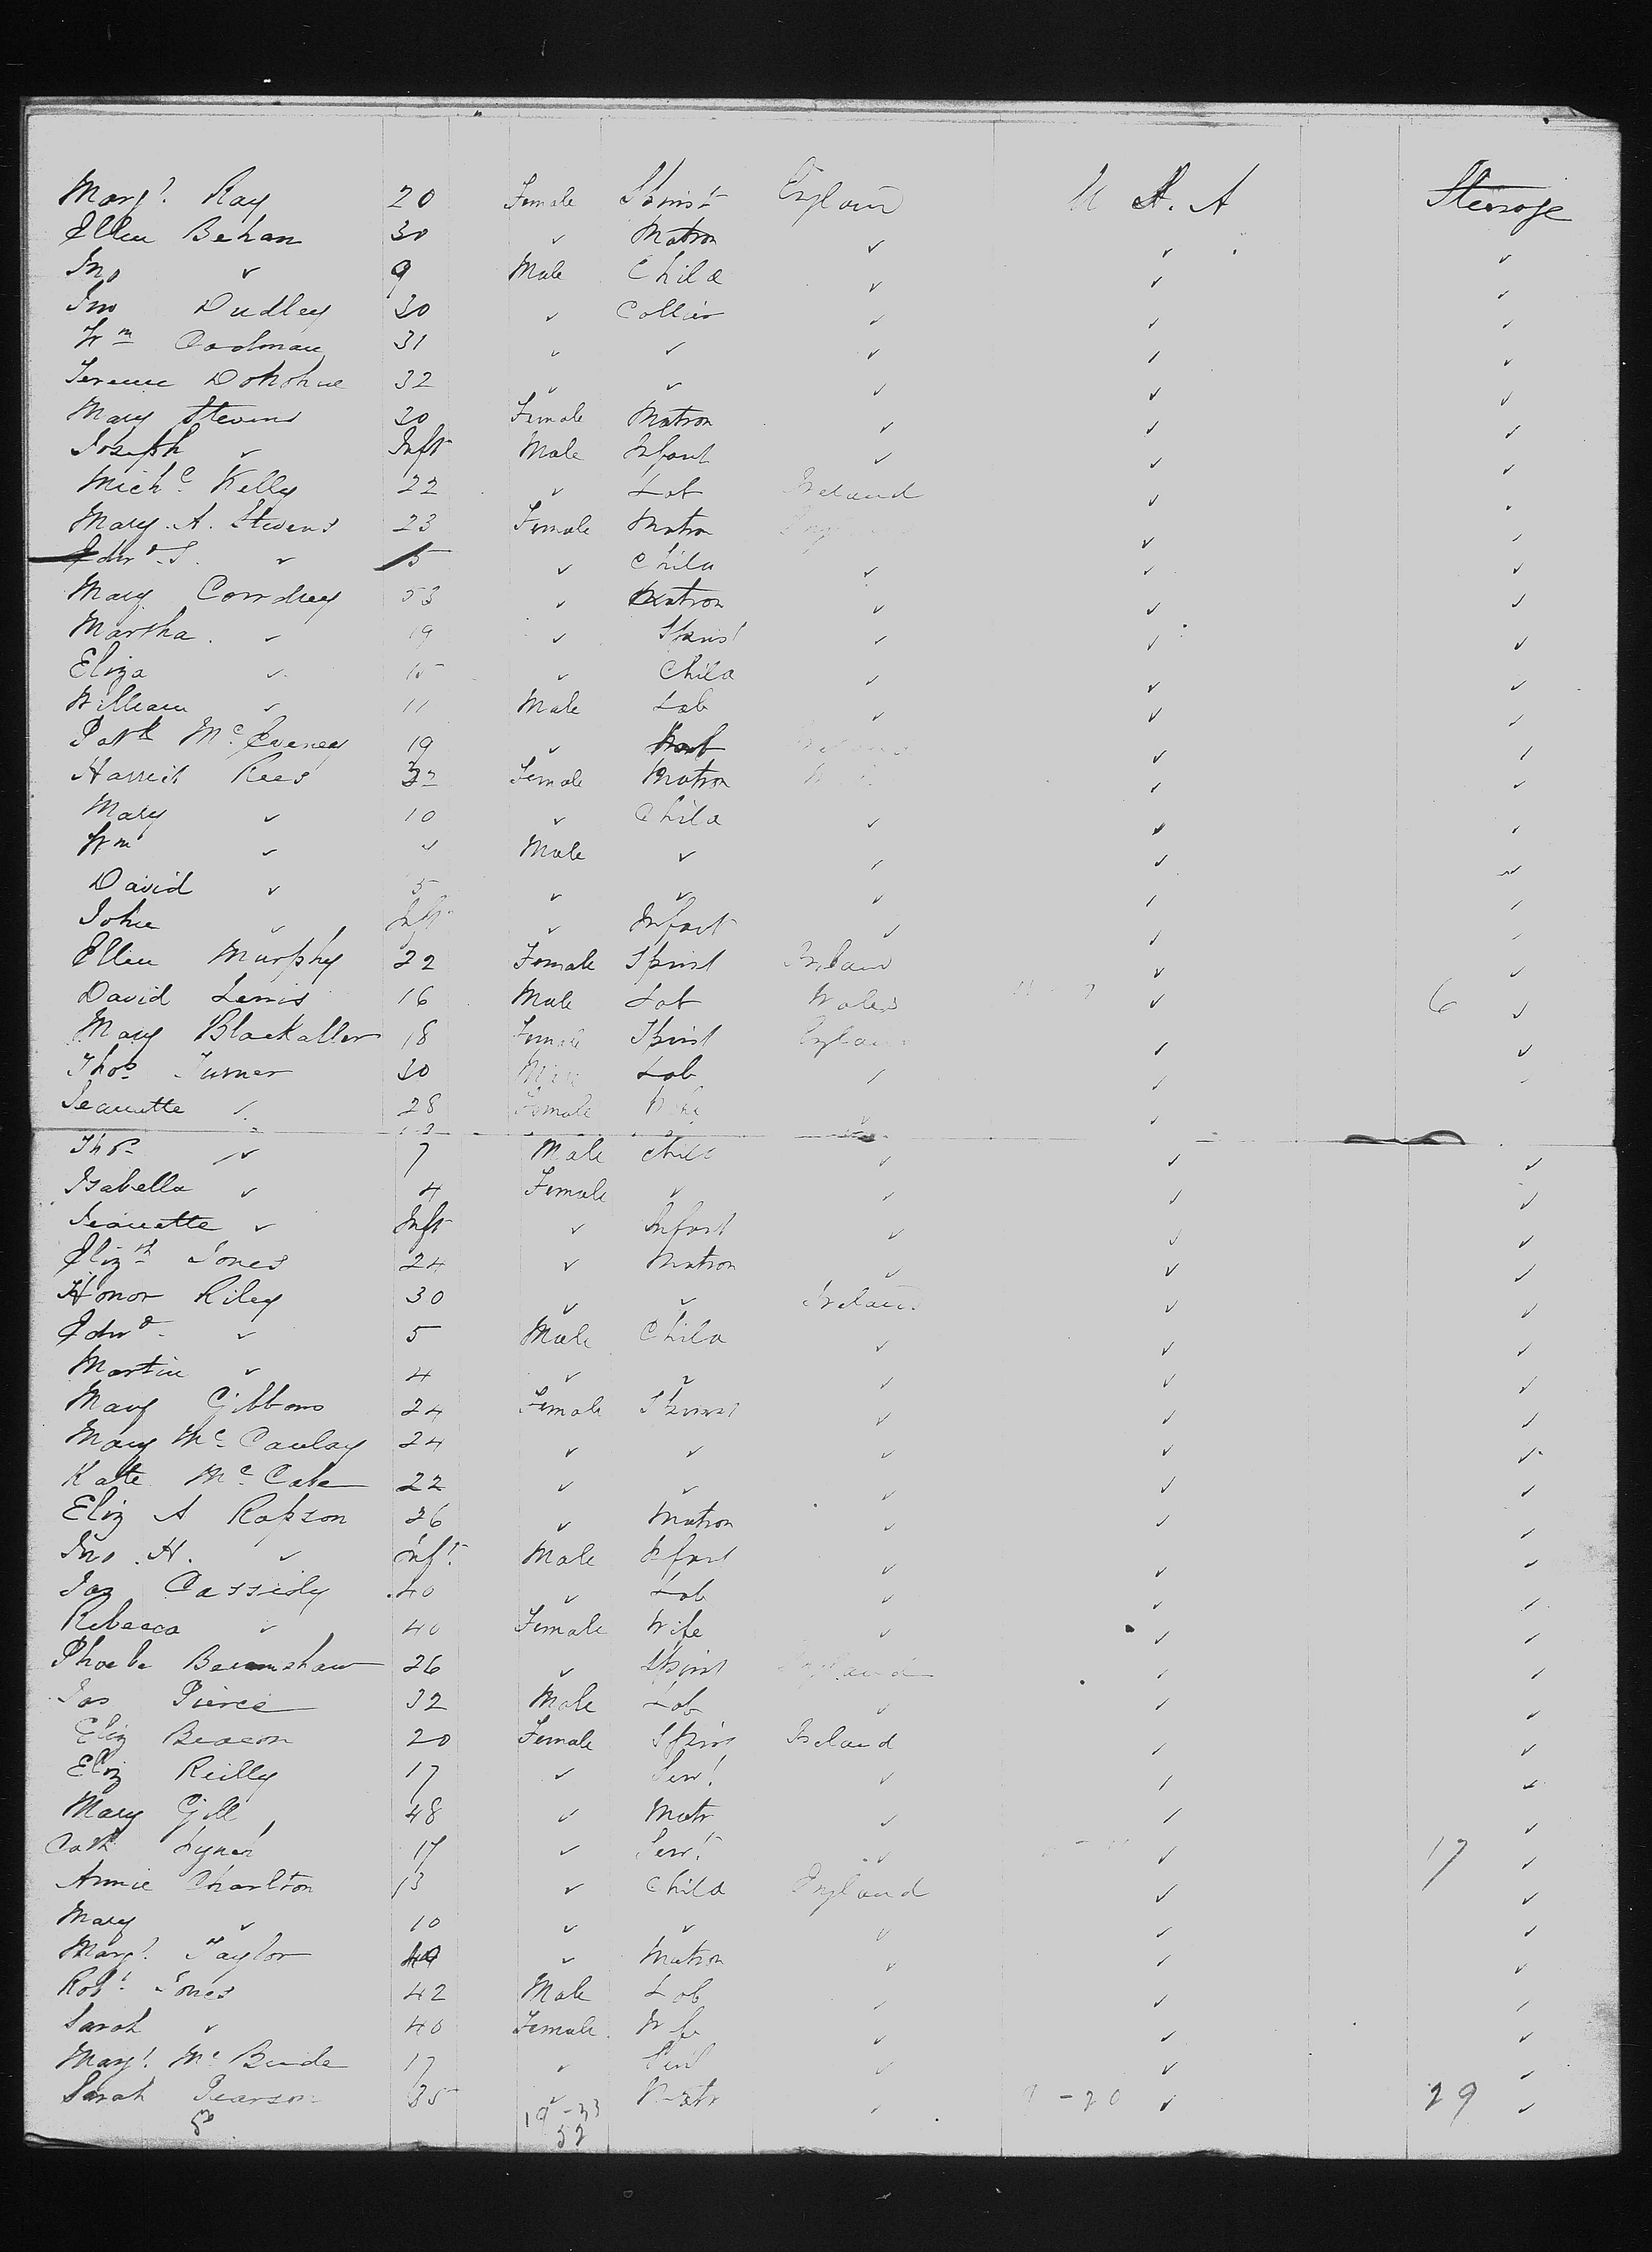 Marg! Ray 20 Female Spinst England U S. A Steerage
Ellen Behan 30 ✓ Matron ✓ ✓ ✓
Jno ✓ 9 Male Child ✓ ✓ ✓
Jno Dudley 30 ✓ Collier ✓ ✓ ✓
Wm 31 ✓ ✓ ✓ ✓ ✓
Terence Donohue 32 ✓ ✓ ✓ ✓ ✓
Mary Stevens 20 Female Matron ✓ ✓ ✓
Joseph ✓ Inft Male Infant ✓ ✓ ✓
Michl Kelly 22 ✓ Lab Ireland ✓
Mary A. Stevens 23 Female Matron England ✓
Edwd S. ✓ 5 ✓ Child ✓ ✓ ✓
Mary 53 ✓ Matron ✓ ✓ ✓
Martha ✓ 19 ✓ Spinst ✓ ✓ ✓
Eliza ✓ 15 ✓ Child ✓ ✓ ✓
William ✓ 11 Male Lab ✓ ✓ ✓
Patk Mc 19 ✓ ✓
Harriet Rees 32 Female Matron ✓ ✓
Mary ✓ 10 ✓ Child ✓ ✓ ✓
Wm ✓ ✓ Male ✓ ✓ ✓ ✓
David ✓ 5 ✓ ✓ ✓ ✓ ✓
John ✓ Inft ✓ Infant ✓ ✓ ✓
Ellen Murphy 22 Female Spinst Ireland ✓ ✓
David Lewis 16 Male Lab Wales ✓ 6 ✓
Mary Blackaller 18 Female Spinst England ✓ ✓
Thos Turner 30 Male Lab ✓ ✓ ✓
Jeanette ✓ 28 Female Wife ✓ ✓
Thos ✓ 7 Male Child ✓ ✓ ✓
Isabella ✓ 4 Female ✓ ✓ ✓ ✓
Jeanette ✓ Inft ✓ Infant ✓ ✓ ✓
Elizth Jones 24 ✓ Matron ✓ ✓ ✓
Honor Riley 30 ✓ ✓ Ireland ✓ ✓
Edwd ✓ 5 Male Child ✓ ✓ ✓
Martin ✓ 4 ✓ ✓ ✓ ✓ ✓
Mary Gibbons 24 Female Spinst ✓ ✓ ✓
Mary Mc Caulay 24 ✓ ✓ ✓ ✓ ✓
Kate Mc Cabe 22 ✓ ✓ ✓ ✓ ✓
Eliz A Rapson 26 ✓ Matron ✓ ✓ ✓
Jno. H. ✓ Inft Male Infant ✓ ✓ ✓
Jas Cassidy 40 ✓ Lab ✓ ✓ ✓
Rebecca ✓ 40 Female Wife ✓ ✓ ✓
Phoebe 26 ✓ Spinst England ✓ ✓
Jas Pierce 32 Male Lab ✓ ✓ ✓
Eliz Beacon 20 Female Spins Ireland ✓ ✓
Eliz Reilly 17 ✓ Serv! ✓ ✓ ✓
Mary Gill 48 ✓ Matr ✓ ✓ ✓
Cath Lynch 17 ✓ Servt ✓ ✓ 17 ✓
Annie Charlton 13 ✓ Child England ✓ ✓
Mary ✓ 10 ✓ ✓ ✓ ✓ ✓
Marg! Taylor ✓ Matron ✓ ✓ ✓
Robt Jones 42 Male Lab ✓ ✓ ✓
Sarah ✓ 40 Female Wife ✓ ✓ ✓
Marg! Mc Bride 17 ✓ ✓ ✓ ✓
Sarah Pearson 35 ✓ Matr ✓ ✓ 29 ✓
19-33
52